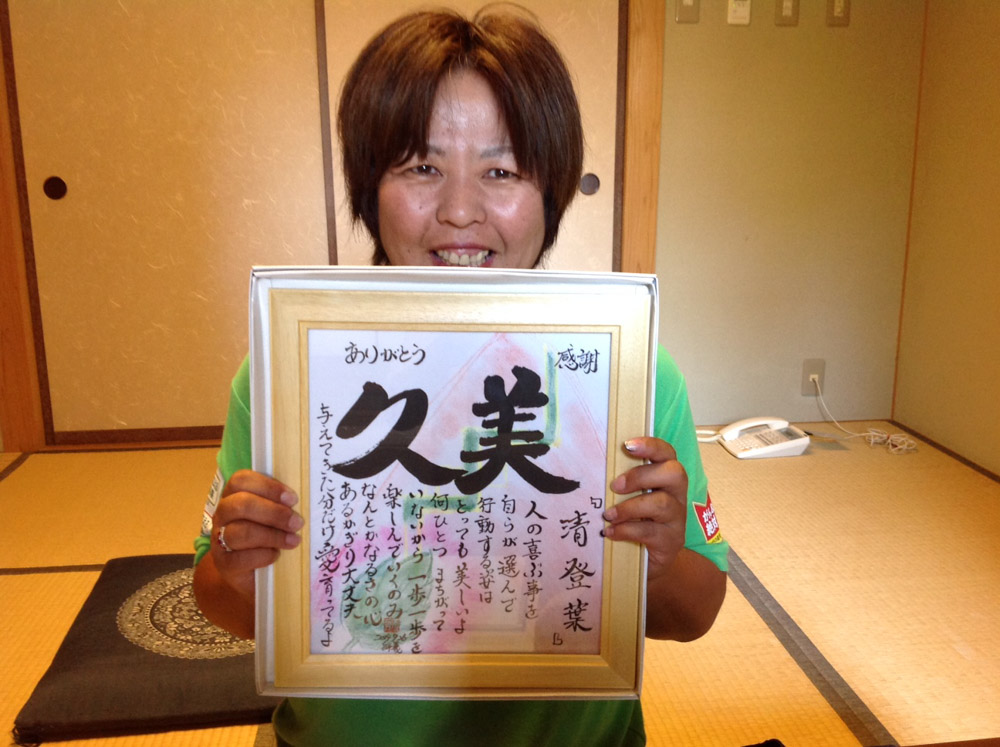 感謝
ありがとう
美久
「清登葉」
人の喜ぶ事を
自らが選んで
行動する姿は
とっても美しいよ
何ひとつまちがって
いないから一歩一歩を
楽しんでいくのみ
なんとかなるさの心
あるかぎり大丈夫
与えてきた分だけ愛育ってるよ